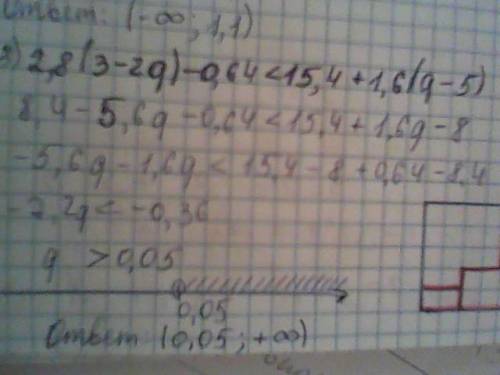 Ответ: (-∞; 1,1)
3) 2,8(3-2q)-0,64<15,4+1,6(q-5)
8,4-5,6q-0,64<15,4+1,6q-8
-5,6q-1,6q<15,4-8+0,64-8,4
-7,2q<-0,36
q >0,05
0,05
Ответ (0,05; +∞)